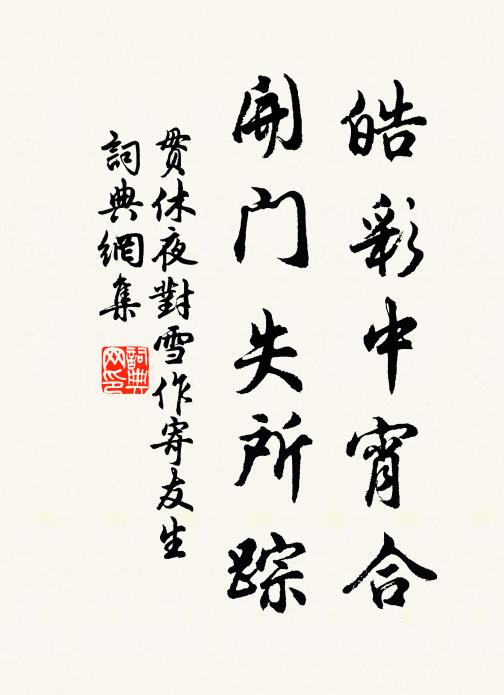 皓彩中宵合
開门失所踪
貫休夜對雪作寄友生
詞典網集
詞典
网印